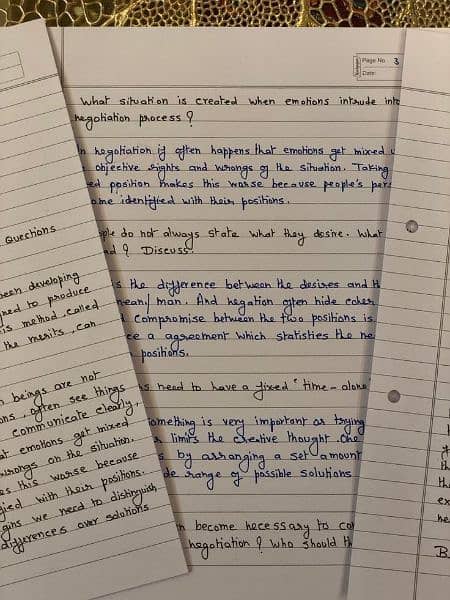 Page No. 3
Date:
What situation is created when emotions intrude into
negotiation process ?
negotiation it often happens that emotions get mixed
objective rights and wrongs of the situation. Taking
position makes this worse because people's
identified with their positions.
do not always state what they desire. What
? Discuss.
the difference between the desires and
man. And negation often hide
compromise between the two positions is
a agreement which statisties the
positions.
need to have a fixed "time - alone
something is very important as trying
limits the creative thought. One
by arranging a set amount
range of possible solutions
become necessary to
negotiation ? Who should
Questions
been developing
to produce
method, called
the merits, can
beings are not
often see things
communicate clearly,
emotions get mixed
wrongs on the situation.
this worse because
with their positions.
we need to distinguish
differences over solutions